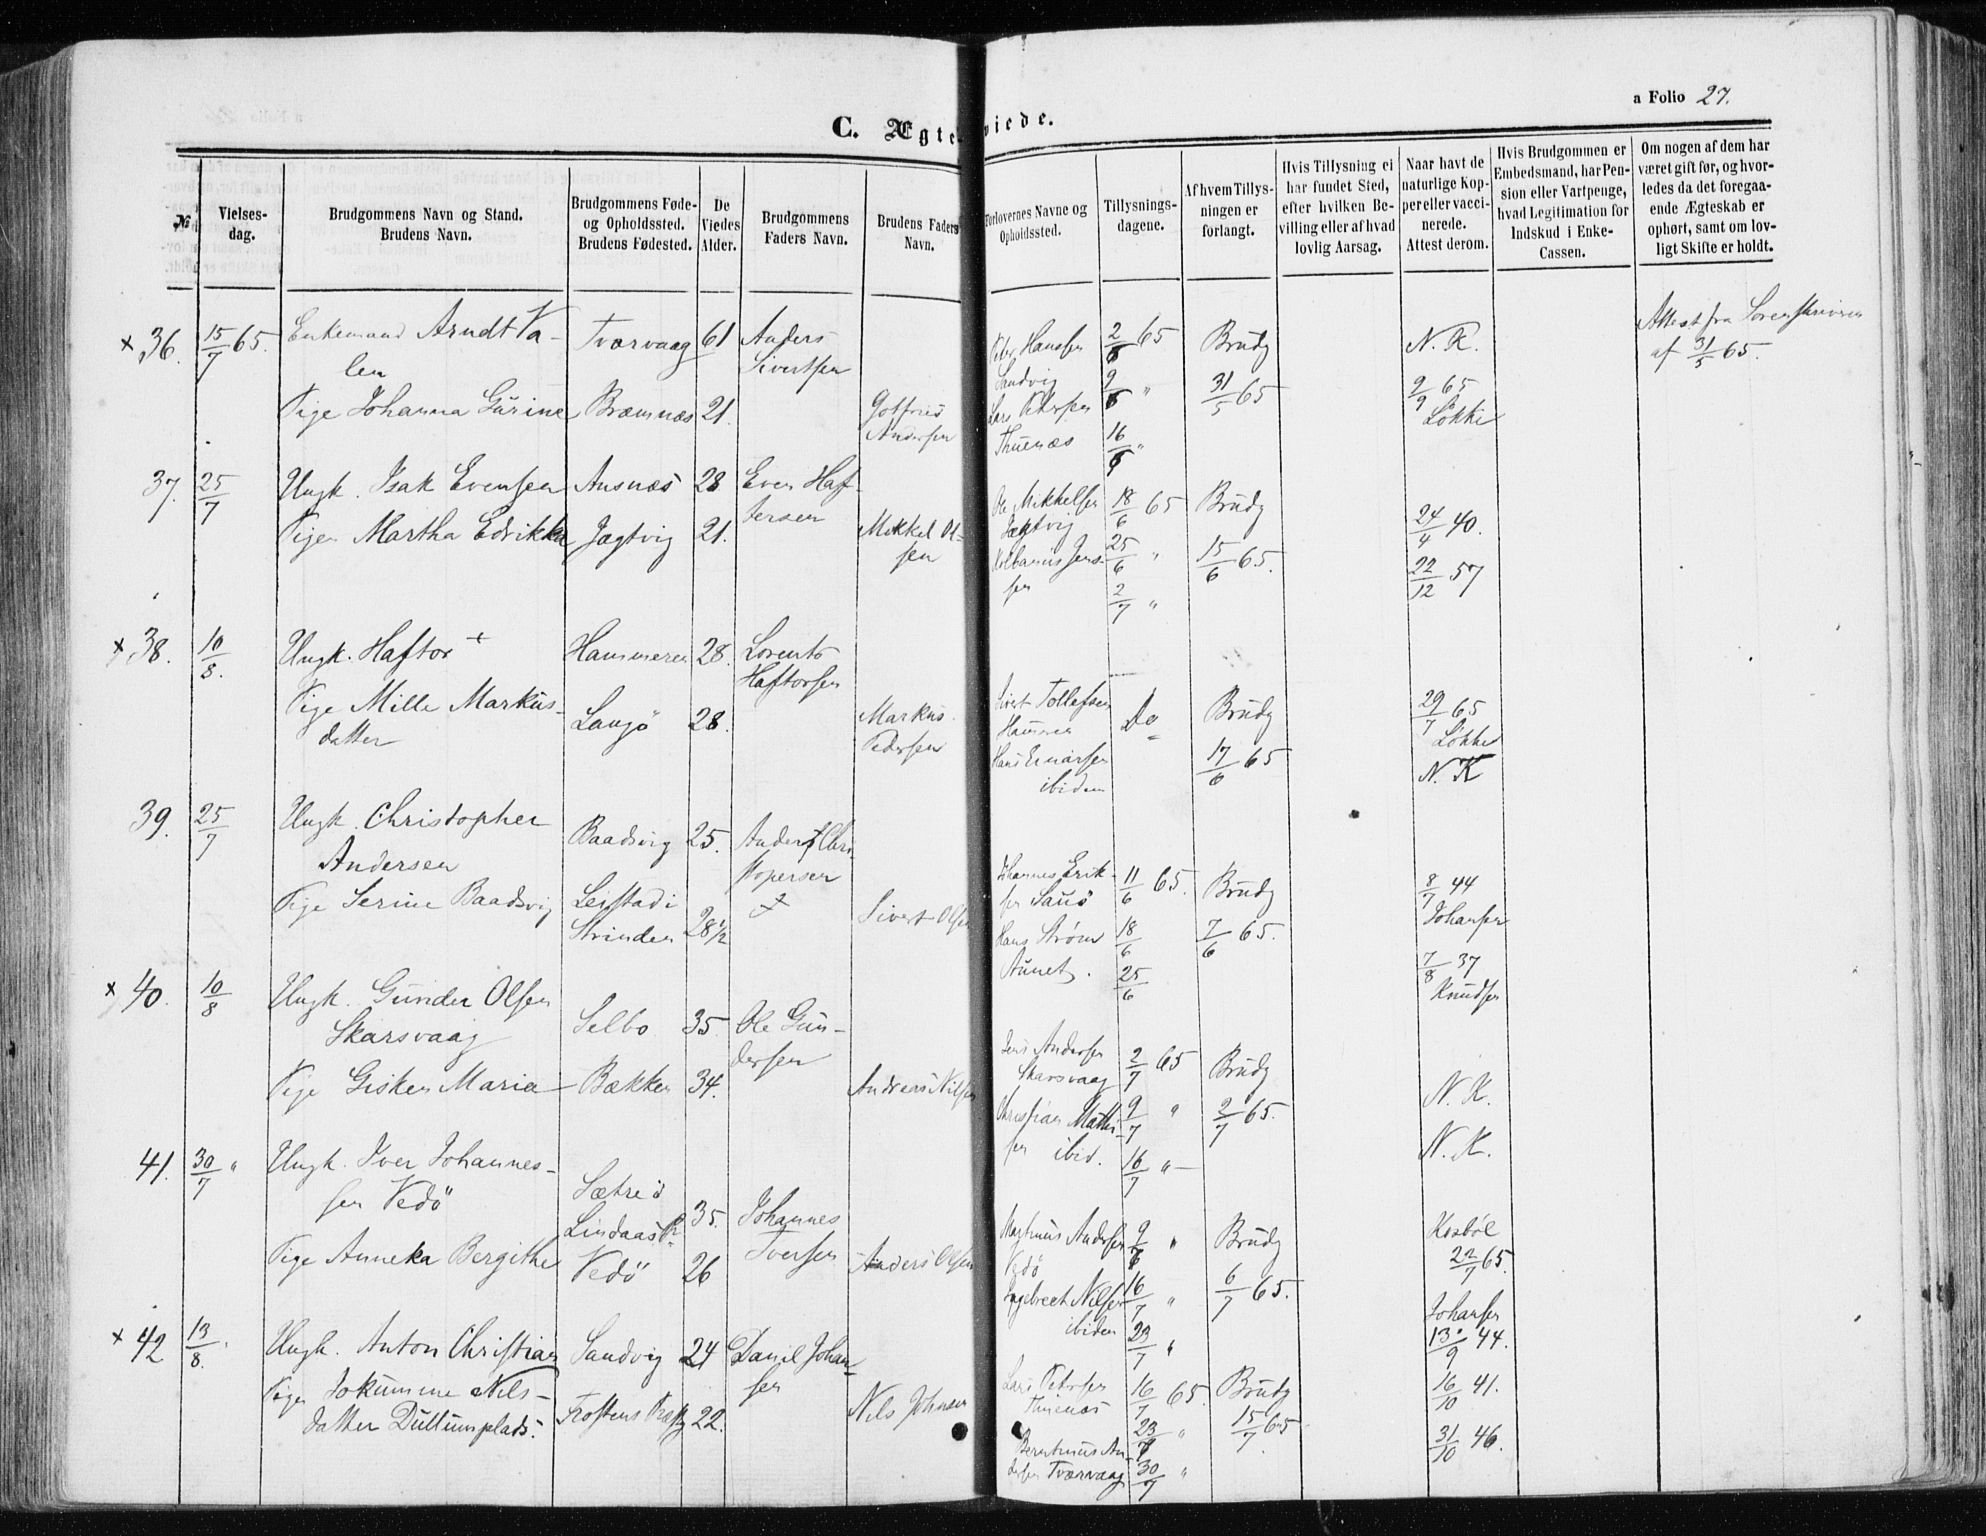 a Folio 27.
C. Ægteviede.
№
Vielses-
dag.
Brudgommens Navn og Stand.
Brudens Navn.
Brudgommens Føde-
og Opholdssted.
Brudens Fødested.
De
Viedes
Alder.
Brudgommens
Faders Navn.
Brudens Faders
Navn.
Forlovernes Navne og
Opholdssted.
Tillysnings-
dagene.
Af hvem Tillys-
ningen er
forlangt.
Hvis Tillysning ei
har fundet Sted,
efter hvilken Be-
villing eller af hvad
lovlig Aarsag.
Naar havt de
naturlige Kop-
per eller vacci-
nerede.
Attest derom.
Hvis Brudgommen er
Embedsmand, har Pen-
sion eller Vartpenge,
hvad Legitimation for
Indskud i Enke-
Cassen.
Om nogen af dem har
været gift før, og hvor-
ledes da det foregaa-
ende Ægteskab er
ophørt, samt om lov-
ligt Skifte er holdt.
x 36. 15/7 65. Enkemand Arndt Va-
len
Tværvaag 61 Anders
Sivertsen
Pige Johanna Gurine Bræmnæs 21.
Gotfried
Andersen
Peter Hansen
Sandvig
Lars Petersen
Thuenæs
2/6 65
9/6 "
16/6 "
Brudg
31/5 65
N. K.
9/9 65
Løkke
Attest fra Sorenskriveren
af 31/5 65.
37. 25/7 Ungk. Isak Evensen Ausnæs 28 Even Haf-
torsen
Pigen Martha Edrikka Jægtvig 21. Mikkel Ol-
sen
Ole Mikkelsen
Jægtvig
Kolbanus Jens-
sen
18/6 65
25/6 "
2/7 "
Brudg
15/6 65.
24/4 40.
22/12 57
x 38. 10/8. Ungk. Haftor + Hammeren 28. Lorents
Haftorsen
Pige Mille Markus-
datter
Langö 28. Markus
Pedersen
Sivert Tollefsen
Hammer
Hans Einarsen
ibidem
Do
Brudg
17/6 65
29/7 65
Løkke
N. K
39. 25/7 Ungk. Christopher
Andersen
Baadsvig 25. Anders Chri-
stopersen
Pige Serine Baadsvig Leistad i
Strinden 28 1/2 Sivert Olsen
Johannes Erik-
sen Sauö
Hans Strøm
Aunet.
11/6 65.
18/6
25/6
Brudg
7/6 65.
8/7 44
Johansen
7/8 37
Knudsen
x 40. 10/8 Ungk. Gunder Olsen
Skarsvaag
Selbo 35. Ole Gun-
dersen
Pige Gisken Maria Bækken 34. Andreas Nilsen
Jens Andersen
Skarsvaag
Christian Mathi-
sen ibid.
2/7 65
9/7 "
16/7 "
Brudg
2/7 65.
N. K.
N. K.
41. 30/7 " Ungk. Iver Johannes-
sen Vedö
Sætre i
Lindaas P. 35. Johannes
Iversen
Pige Anneka Bergithe Vedö 26 Anders Olsen
Martinus Andersen
Vedö
Ingebrect Nilsen
ibidem
9/7 "
16/7 "
23/7 "
Brudg
6/7 65.
22/7 65.
Johansen
13/9 44.
x 42 13/8. Ungk. Anton Christian Sandvig 24 Daniel Johan-
sen
Pigen Jokumine Nils-
datter Dullumplads.
Frostens Præstg 22. Nils Johnsen
Lars Petersen
Thuenæs
Berntinus An-
dersen Tværvaag
16/7 65.
23/7 "
30/7 "
Brudg
15/7 65
16/10 41.
31/10 46.